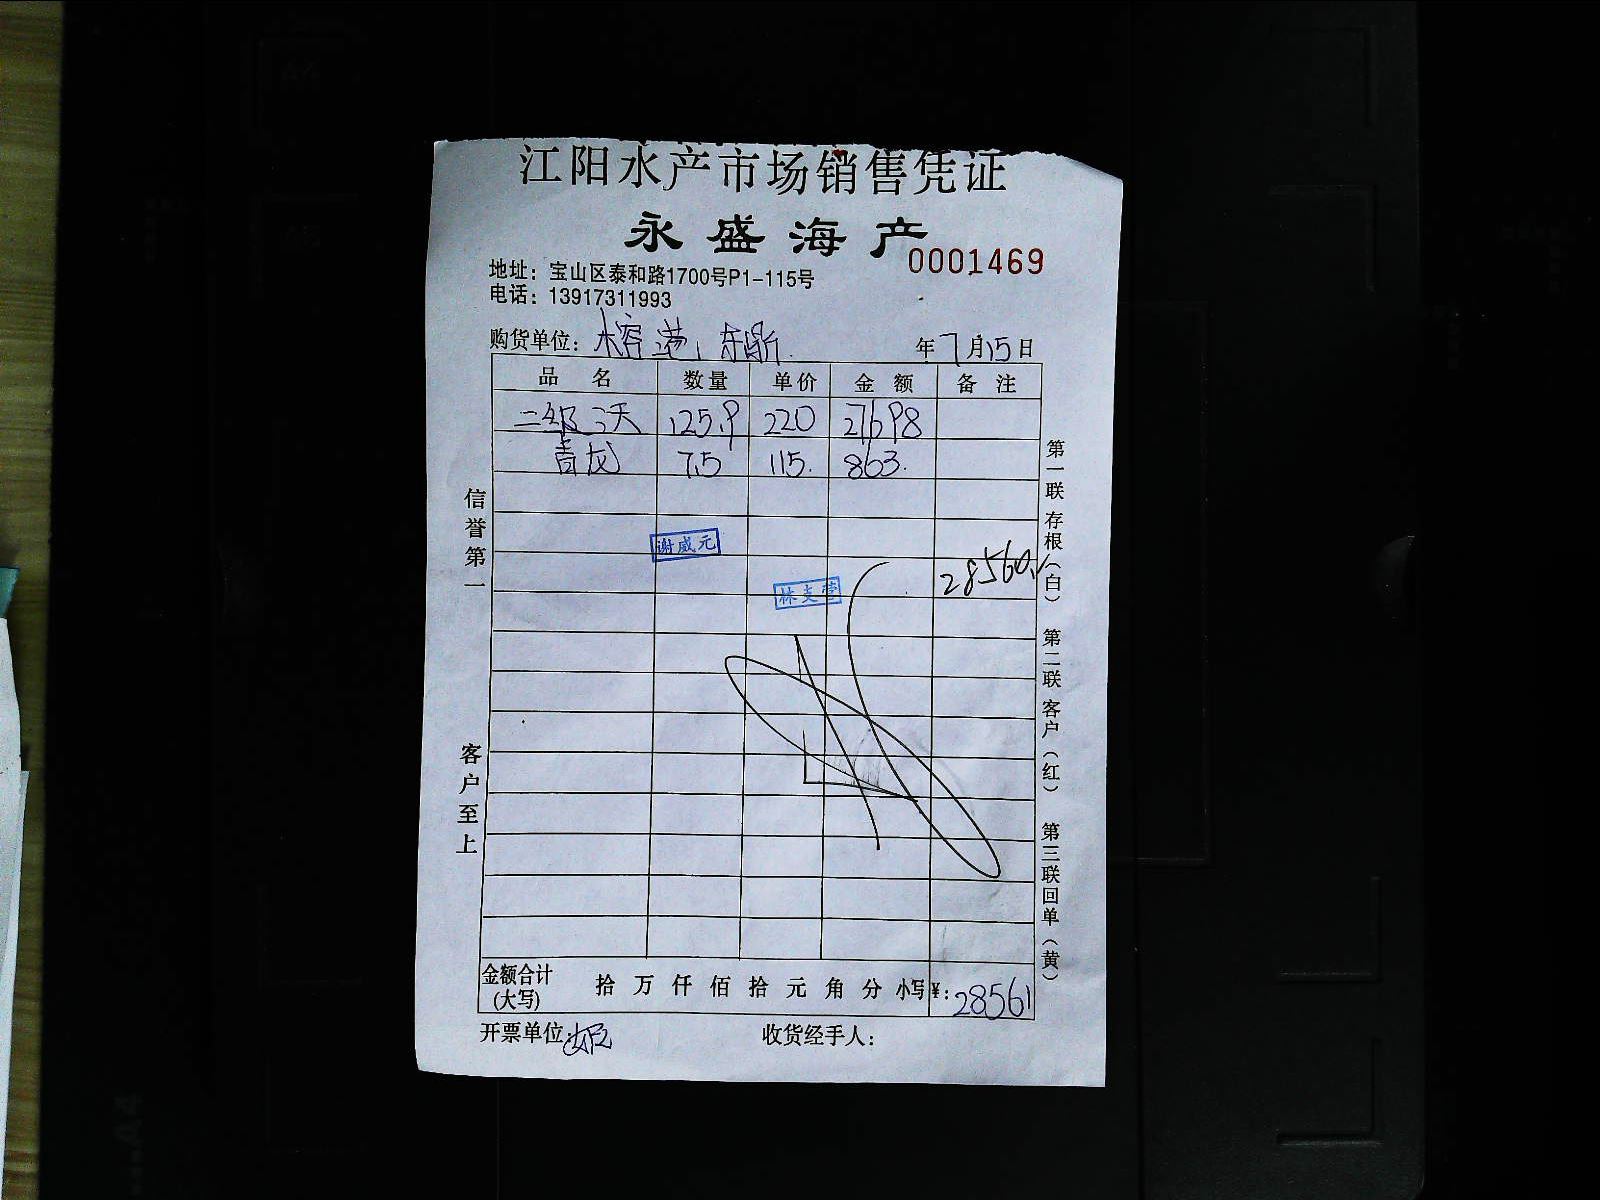 江阳水产市场销售凭证
永盛海产
0001469
地址：宝山区泰和路1700号P1-115号
电话：13917311993
购货单位：榕港，东鼎. 年7月15日
品名 数量 单价 金额 备注
二级 125.9 220 27698
青龙 7.5 115. 863.
谢威元
林支营
28560.
金额合计(大写) 拾万仟佰拾元角分 小写¥：28561
开票单位： 收货经手人：
信誉第一
客户至上
第一联存根（白） 第二联客户（红） 第三联回单（黄）
A4